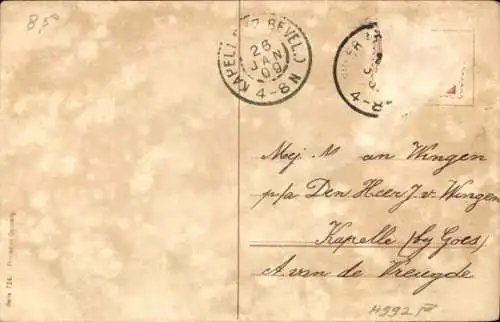 8,5
KAPELLE (Z: BEVEL.)
26
JAN
09
4-8 N
4-8
Mej. A van Wingen
p/a Den Heer J. v. Wingen
Kapelle (by Goes)
A van de Vreugde
Serie 724.
4992 IV